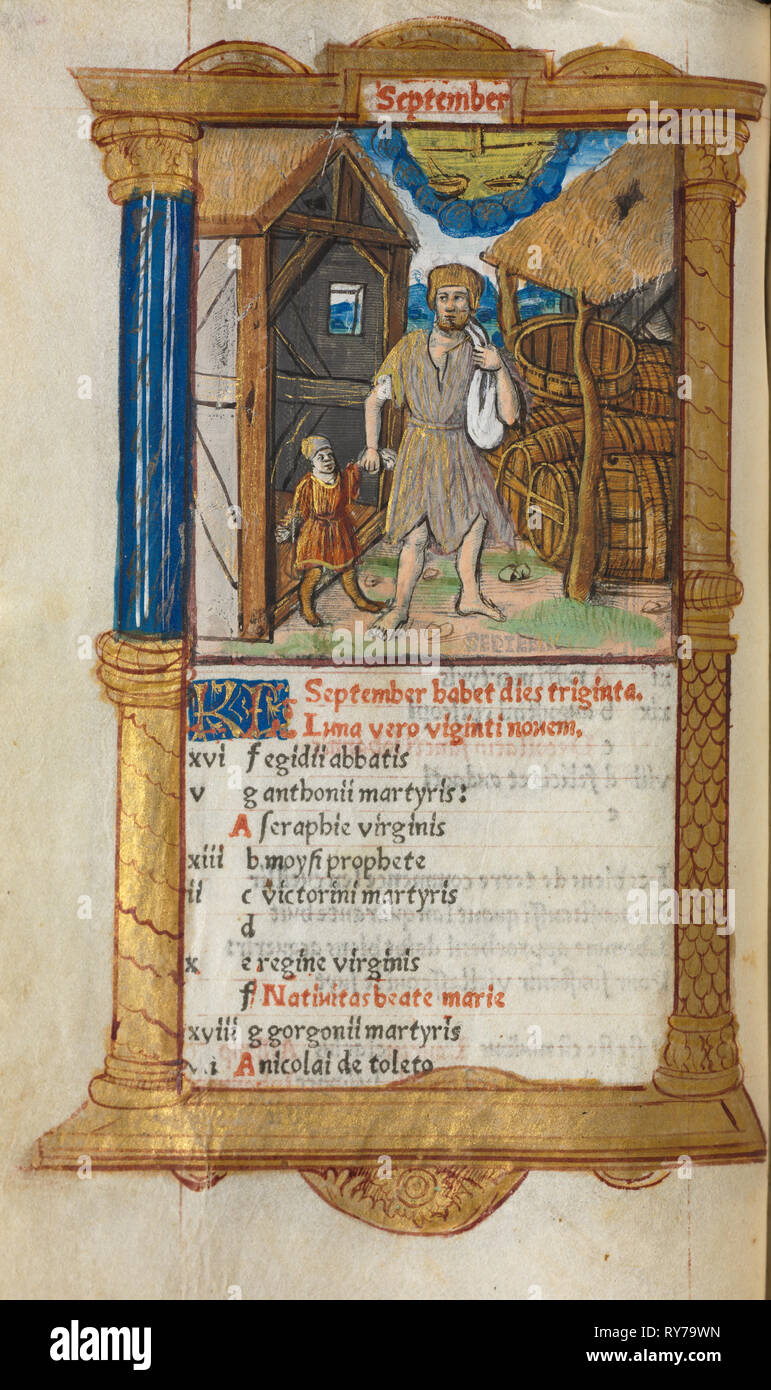 September
KL September habet dies triginta.
Luna vero viginti novem.
xvi f egidii abbatis
v g anthonii martyris:
A seraphie virginis
xiii b moysi prophete
ii c victorini martyris
d
x e regine virginis
f Nativitas beate marie
xviii g gorgonii martyris
A nicolai de toleto
alamy
Image ID: RY79WN
www.alamy.com